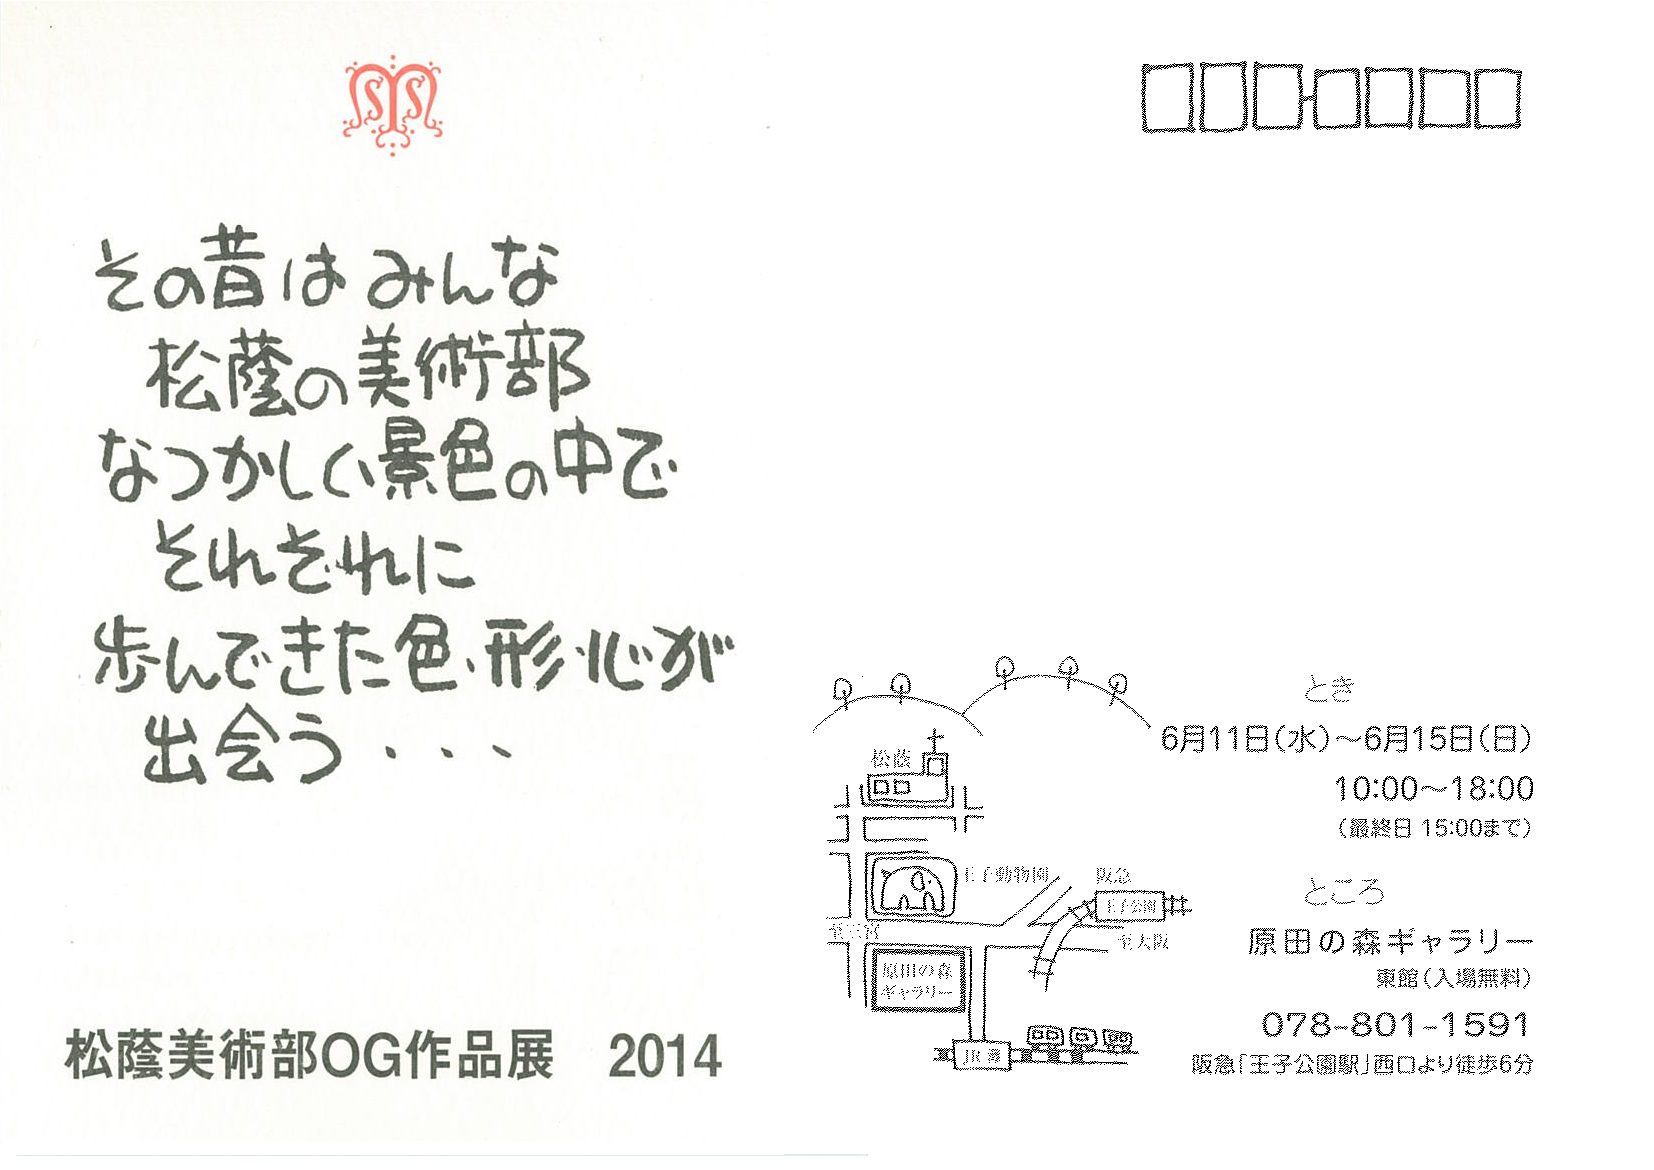 その昔はみんな
松蔭の美術部
なつかしい景色の中で
それぞれに
歩んできた色・形・心が
出会う・・・
松蔭美術部OG作品展 2014
松蔭
王子動物園
阪急
王子公園
至三宮
至大阪
原田の森
ギャラリー
JR灘
とき
6月11日(水)〜6月15日(日)
10:00〜18:00
(最終日 15:00まで)
ところ
原田の森ギャラリー
東館(入場無料)
078-801-1591
阪急「王子公園駅」西口より徒歩6分